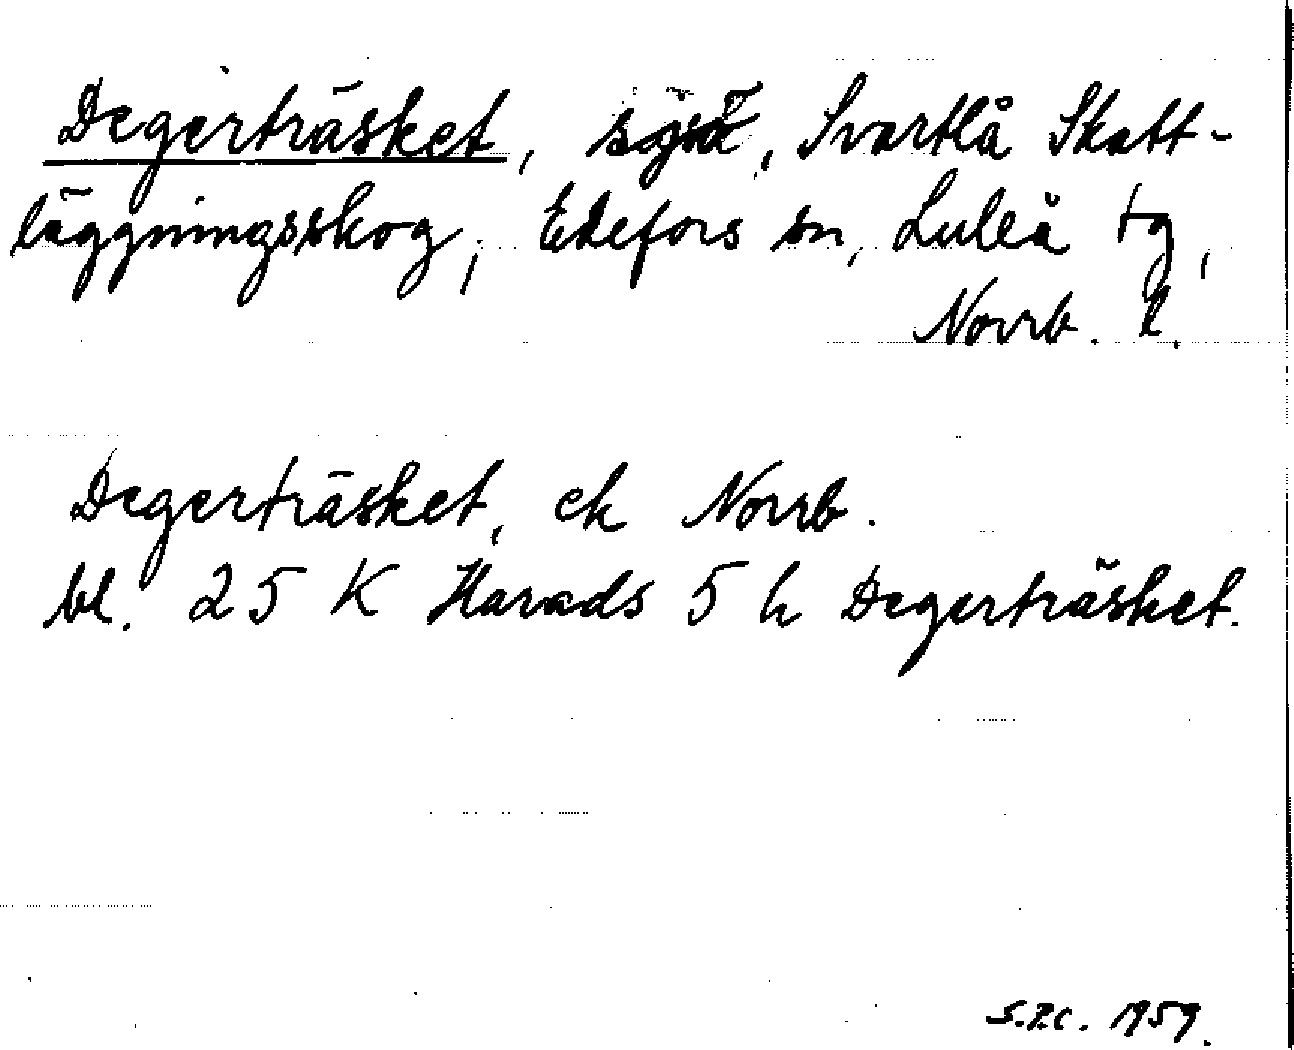 Degerträsket, sjö, Svartlå Skatt-
läggningsskog, Edefors sn, Luleå tg,
Norrb. l.
Degerträsket, ek Norrb.
bl. 25 K Harads 5 h Degerträsket.
1959.